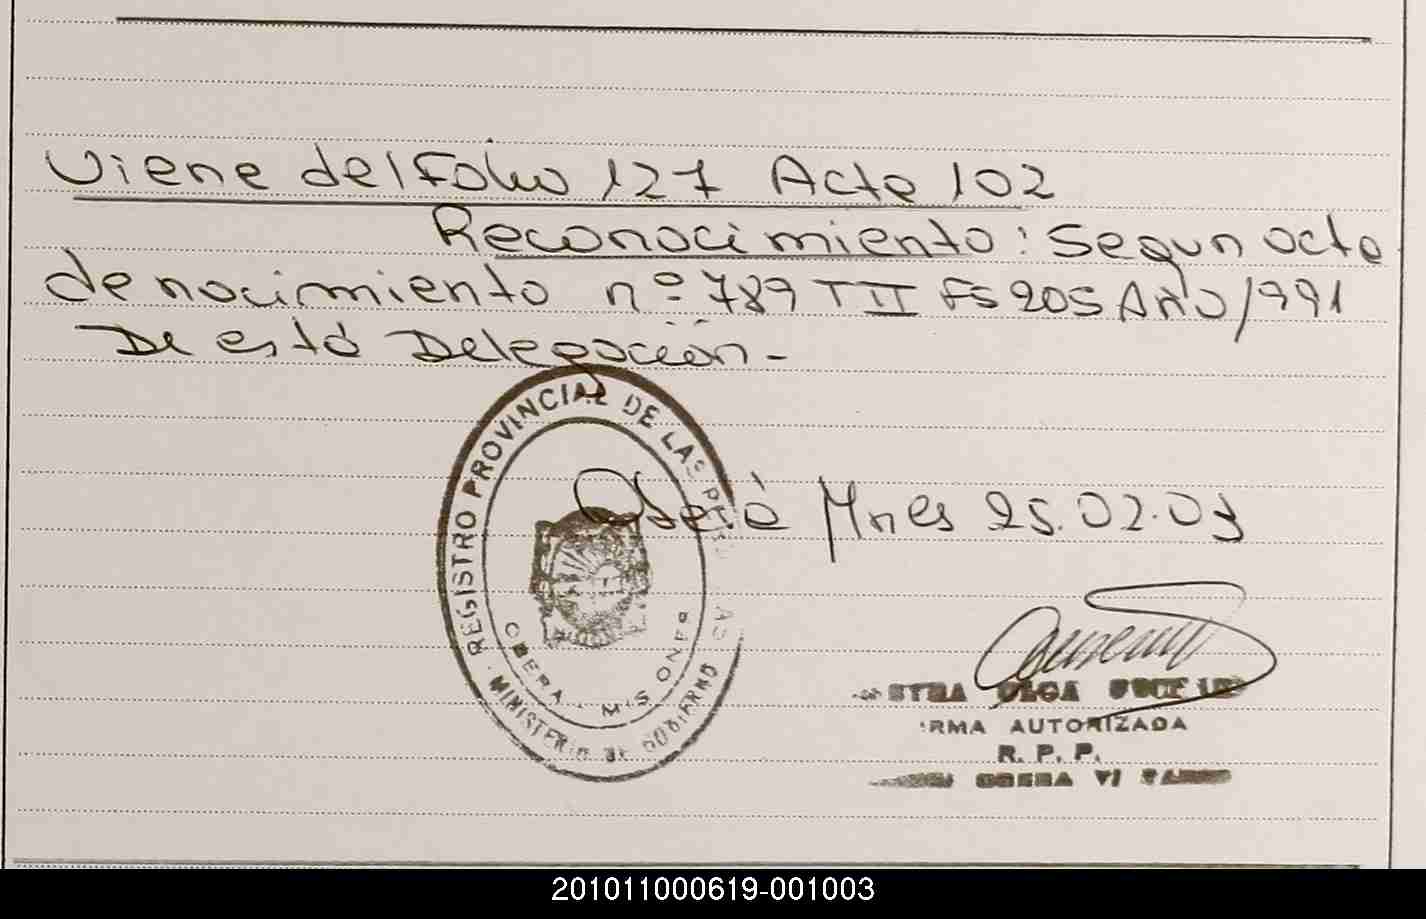 Viene del Folio 127 Acta 102
Reconocimiento: Segun acta
de nacimiento nº 789 T II Fs 205 Año 1991
De está Delegación-
REGISTRO PROVINCIAL DE LAS PERSONAS
OBERA - MISIONES
MINISTERIO DE GOBIERNO
Oberá Mnes 25.02.03
OLGA
FIRMA AUTORIZADA
R. P. P.
OBERA VI
201011000619-001003